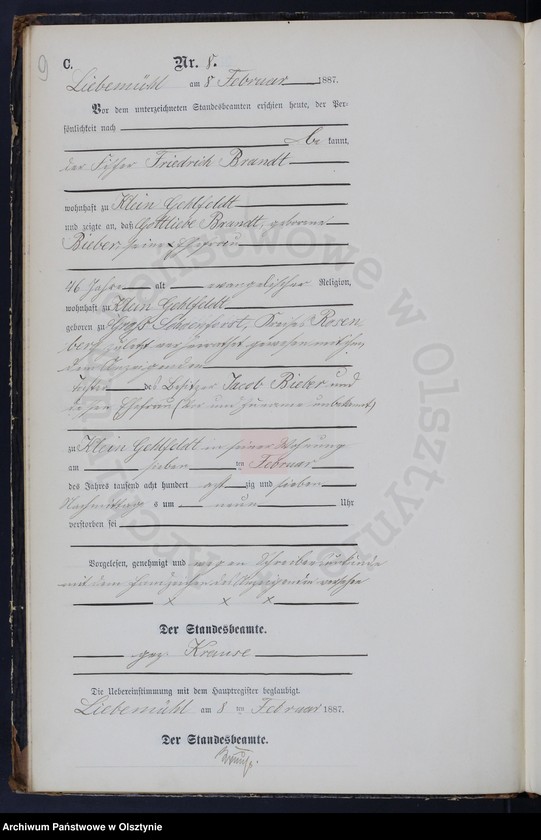 9
C.
Nr. 8.
Liebemühl am 8 Februar 1887.
Vor dem unterzeichneten Standesbeamten erschien heute, der Per-
sönlichkeit nach
be kannt,
der Friedrich Brandt
wohnhaft zu Klein Gehlfeldt
und zeigte an, daß Gottliebe Brandt, geborene
Bieber, seine Ehefrau
46 Jahre alt evangelischer Religion,
wohnhaft zu Klein Gehlfeldt
geboren zu Groß Schoenforst, Kreises Rosen
berg, zuletzt verheirathet gewesen mit ihm,
dem Anzeigenden
Tochter des Besitzer Jacob Bieber und
dessen Ehefrau (Vor und Zuname unbekannt)
zu Klein Gehlfeldt in seiner Wohnung
am sieben ten Februar
des Jahres tausend acht hundert acht zig und sieben
Nachmittags um neun Uhr
verstorben sei
Vorgelesen, genehmigt und wegen
mit dem Handzeichen des Anzeigenden versehen
x x x
Der Standesbeamte.
gez. Krause
Die Uebereinstimmung mit dem Hauptregister beglaubigt.
Liebemühl am 8 ten Februar 1887.
Der Standesbeamte.
Krause.
Archiwum Państwowe w Olsztynie